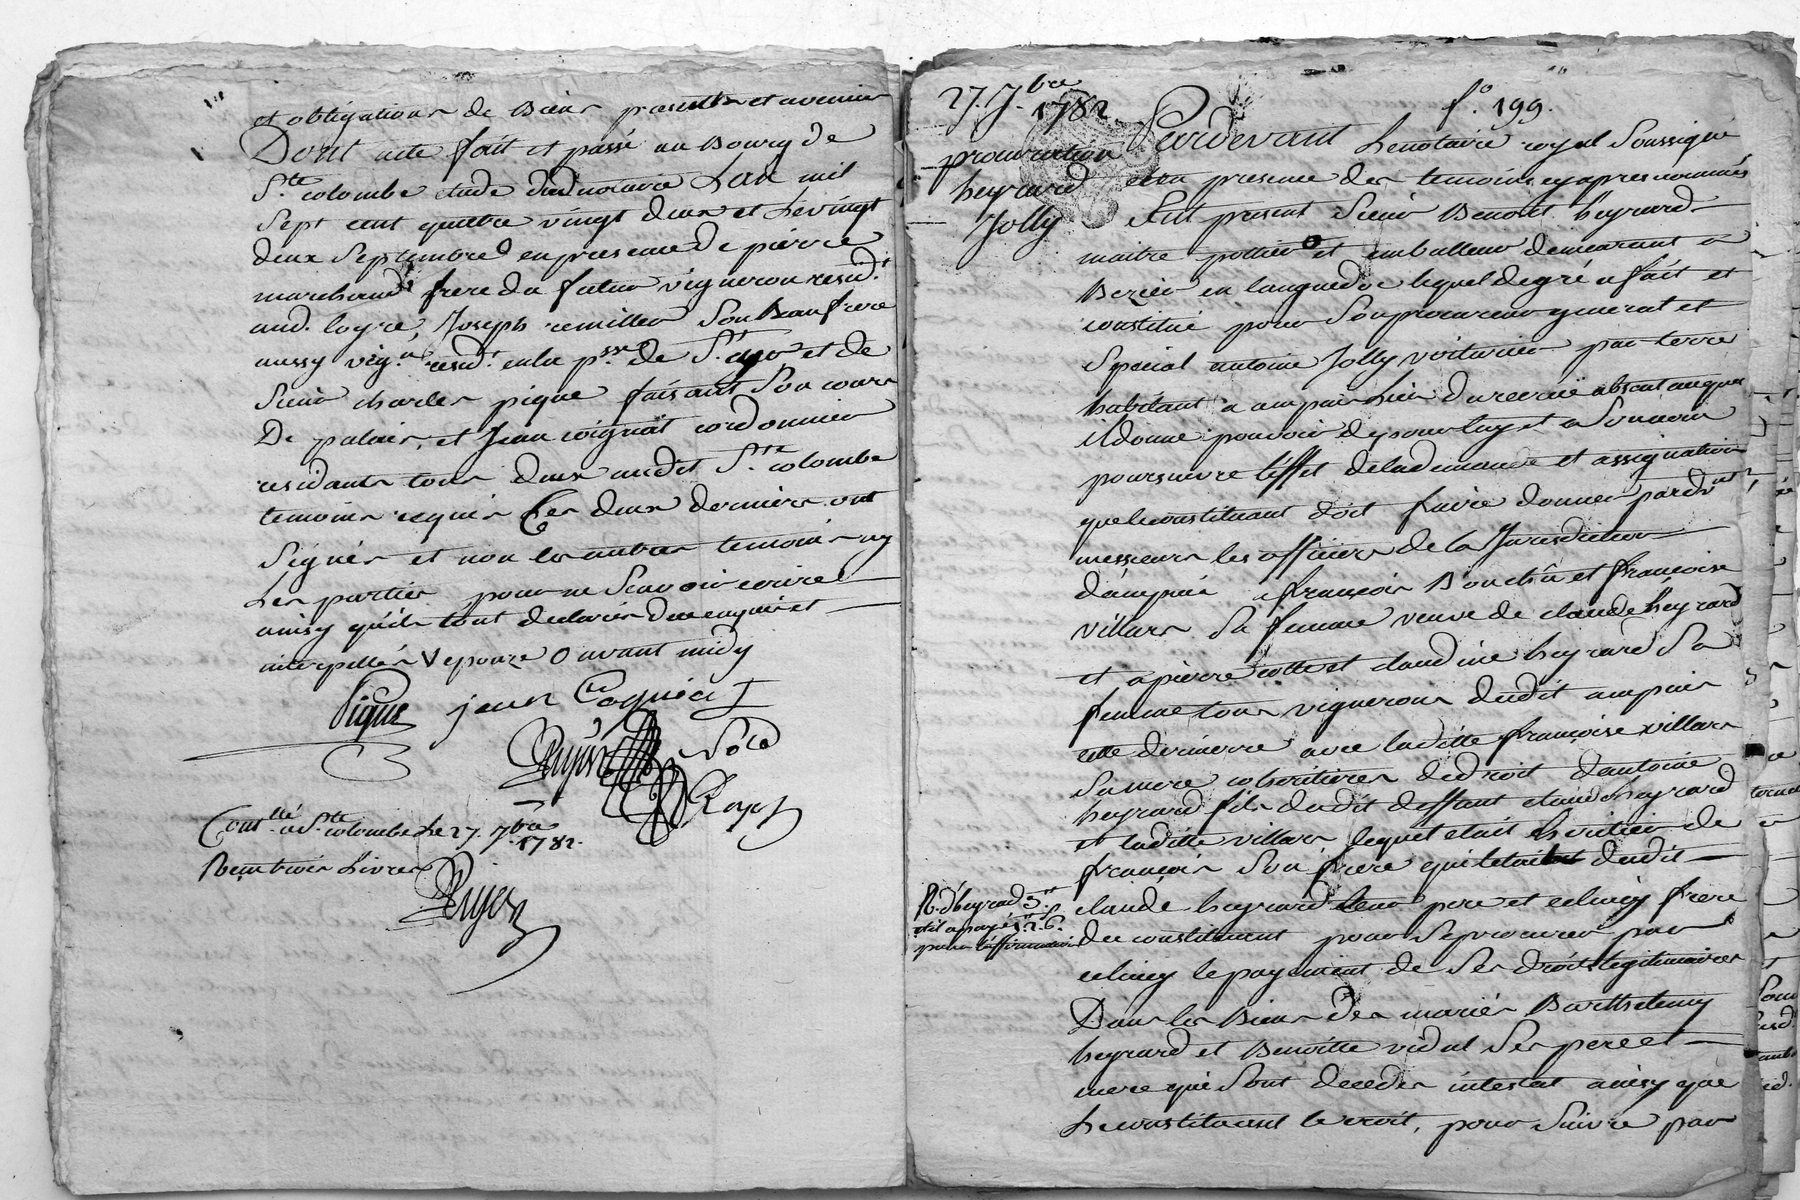 et obligations de Biens presents et avenir
Dont acte fait et passé au Bourg de
Ste colombe etude dud notaire Lan mil
Sept cent quattre vingt deux et Le vingt
deux Septembre en presence de pierre
marchand frere du futur vigneron resid.t
aud. loyre, Joseph remillier Son Beaufrere
aussy vig.n resid.t en la p.sse de St. cyr et de
Sieur charles pigue faisant Son cours
De palais, et Jean coignat cordonnier
residants tous deux audit Ste colombe
temoins requis Ces deux derniers ont
Signés et non les autres temoins ny
Les parties pour ne Scavoir ecrire
ainsy qu'ils l'ont declarés de ce enquis et
interpellés V eponze O avant midy
Pigue jean Cognia
Noté
Royer
Con.llé a Ste colombe Le 27. 7bre 1782.
Reçu trois Livres
27. 7.bre 1782
f.o 199.
procuration
heyrard
Jolly
Pardevant Le notaire royal Soussigné
et en presence des temoins cy apres nommés
Fut present Sieur Benoit heyrard
maitre pottier et emballeur demeurant a
Bezier en languedoc lequel de gré a fait et
constitué pour Son procureur general et
Special antoine Jolly voiturier par terre
habitant a ampuis Lieu du recru absent auquel
il donne pouvoir de pour luy et a Son nom
poursuivre l'effet de la demande et assignation
que le constituant doit faire donner pardvant
messieurs les officiers de la Jurisdiction
d'ampuis a françois Bouchu et françoise
villars Sa femme veuve de claude heyrard
et a pierre cotte et claudine heyrard Sa
femme tous vignerons dudit ampuis
cette derniere avec ladite françoise villars
Sa mere coheritieres de droit d'antoine
heyrard fils dudit deffunt claude heyrard
et ladite villars lequel etait heritier de
françois Son frere qui l'etait dudit
claude heyrard leur pere et iceluy frere
du constituant pour Se procurer par
iceluy le payement de Ses droits legitimaires
Dans les Biens des mariés Barthelemy
heyrard et Benoitte vidal Ses pere et
mere qui Sont decedés intestat ainsy que
Le constituant le croit, pour Suivre par
R. d'heyrard 3.tt
et il a payé 1.tt 2.s 6.d
pour l'affirmation